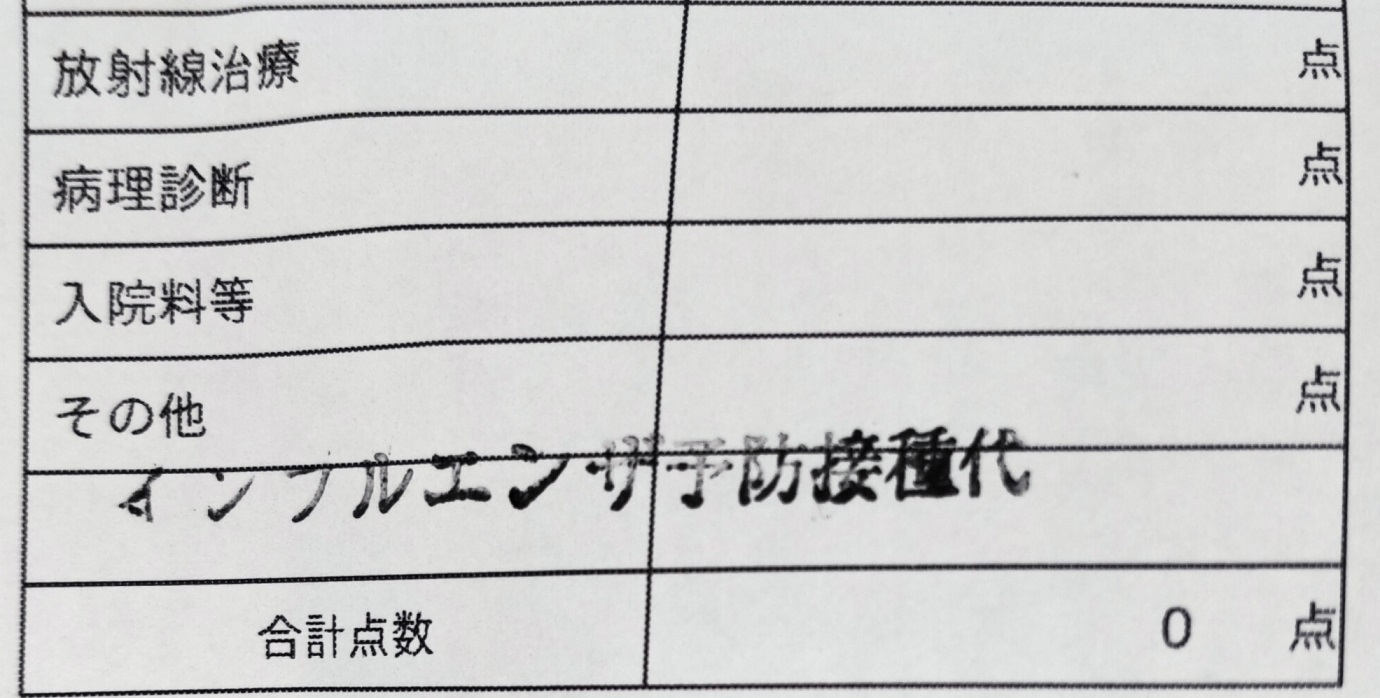 放射線治療 点
病理診断 点
入院料等 点
その他 点
インフルエンザ予防接種代
合計点数 0 点